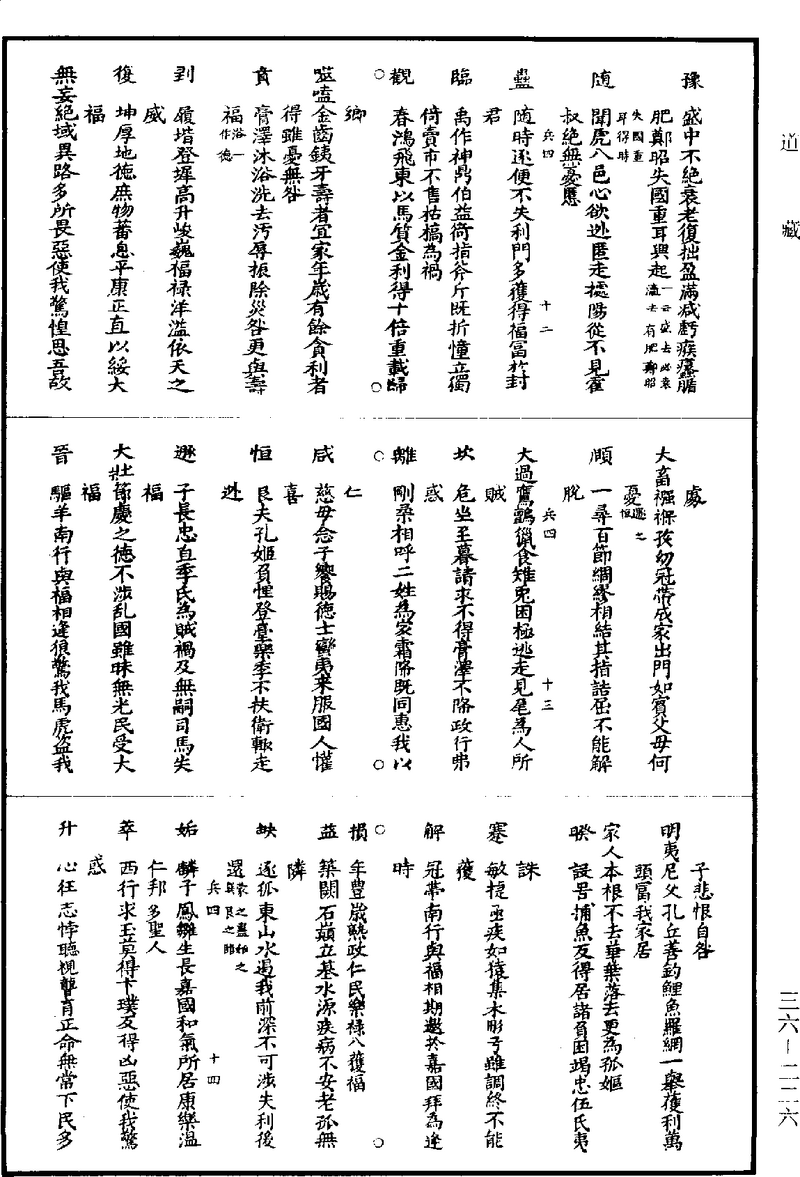 道藏
豫 盛中不絶衰老復拙盈滿減虧瘯癦腯
肥鄭昭失國重耳興起一云盛去必衰瀛去有肥鄭昭
失國重耳得時
隨 聞虎入邑心欲逃匿走據陽從不見霍
叔絶無憂慝
蠱 隨時逐便不失利門多獲得福富於封
君
兵四 十二
臨 禹作神鼎伯益銜指斧斤既折憧立獨
倚賣市不售枯槁為禍
觀 春鴻飛東以馬質金利得十倍重載歸
鄉
噬嗑金齒鐵牙壽耉宜家年歲有餘貪利者
得雖憂無咎
賁 膏澤沐浴洗去汚辱振除災咎更與壽
福浴一作德
剝 履堦登墀高升峻巍福祿洋溢依天之
威
復 坤厚地德庶物蕃息平康正直以綏大
福
無妄絶域異路多所畏惡使我驚惶思吾故
處
大畜襁褓孩幼冠帶成家出門如賓父母何
憂遯之恒
頤 一尋百節綢繆相結其指詰屈不能解
脫
大過鷹鸇獵食雉兎困極逃走見尾為人所
賊
兵四 十三
坎 危坐至暮請求不得膏澤不降政行弗
惑
離 剛柔相呼二姓為家霜降既同惠我以
仁
咸 慈母念子饗賜德士蠻夷來服國人懽
喜
恒 艮夫孔姬負悝登臺欒季不扶衛輒走
逃
遯 子長忠直季氏為賊禍及無嗣司馬失
福
大壯節慶之德不涉乱國雖昧無光民受大
福
晉 驅羊南行與福相逢狼驚我馬虎盜我
子悲恨自咎
明夷尼父孔丘善釣鯉魚羅網一舉獲利萬
頭富我家居
家人本根不去華葉落去更為孤嫗
睽 設罟捕魚反得居諸員困竭忠伍氏夷
誅
蹇 敏捷亟疾如猿集木彤弓雖調終不能
獲
解 冠帶南行與福相期邀於嘉國拜為逢
時
損 年豐歲熟政仁民樂祿入獲福
益 築闕石巔立基水源疾病不安老孤無
隣
夬 逐狐東山水遏我前深不可涉失利後
還
兵四 十四
姤 麟子鳳雛生長嘉國和氣所居康樂温
仁邦多聖人
萃 西行求玉莫得卞璞反得凶惡使我驚
惑
升 心狂志悖聽視聾盲正命無常下民多
三六—二二六